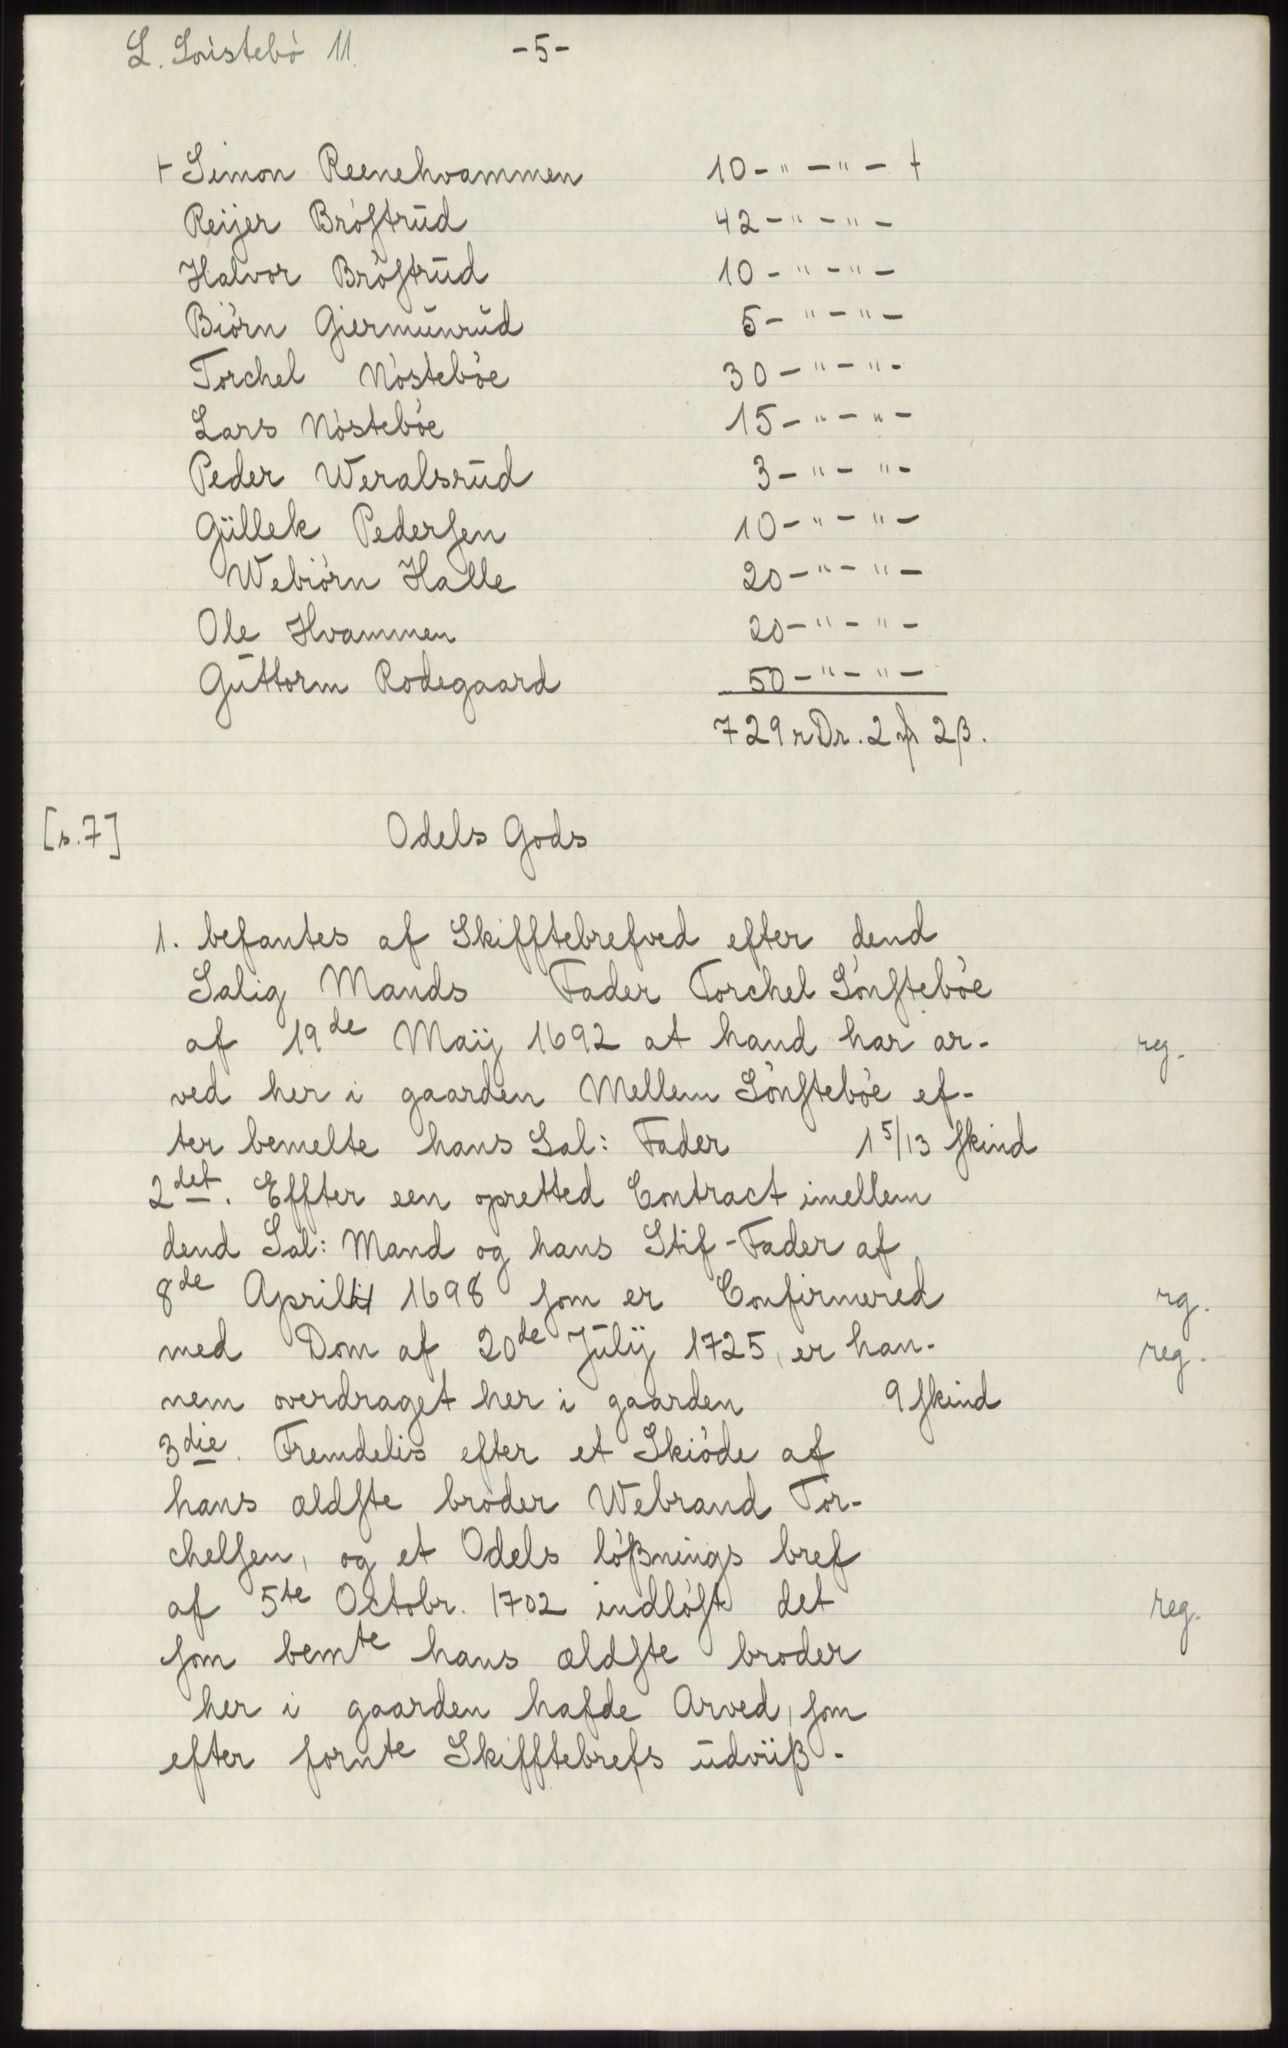 L. Sönstebö 11. -5-
+ Simon Reenehvammen 10-"-"- +
Reijer Bröstrud 42-"-"-
Halvor Bröstrud 10-"-"-
Biörn Giermunrud 5-"-"-
Torchel Nöstebøe 30-"-"-
Lars Nöstebøe 15-"-"-
Peder Weralsrud 3-"-"-
Güllek Pedersen 10-"-"-
Webiörn Halle 20-"-"-
Ole Hvammen 20-"-"-
Guttorm Rodegaard 50-"-"-
729 rDr. 2 2β.
[s.7] Odels Gods
1. befantes af Skifftebrefved efter dend
Salig Mands Fader Torchel Sönstebøe
af 19de Maÿ 1692 at hand har ar- reg.
ved her i gaarden Mellem Sönstebøe ef-
ter bemelte hans Sal: Fader 1 5/13 skind
2det. Effter een oprettet Contract imellem
dend Sal: Mand og hans Stif-Fader af
8de April 1698 som er Confirmered rg.
med Dom af 20de Julÿ 1725, er han- reg.
nem overdraget her i gaarden 9 skind
3die. Fremdelis efter et Skiöde af
hans ældste broder Webrand Tor-
chelsen, og et Odels lößnings bref
af 5te Octobr. 1702 indlöst det reg.
som bemte hans ældste broder
her i gaarden hafde Arved, som
efter fornte Skifftebrefs udvüß-